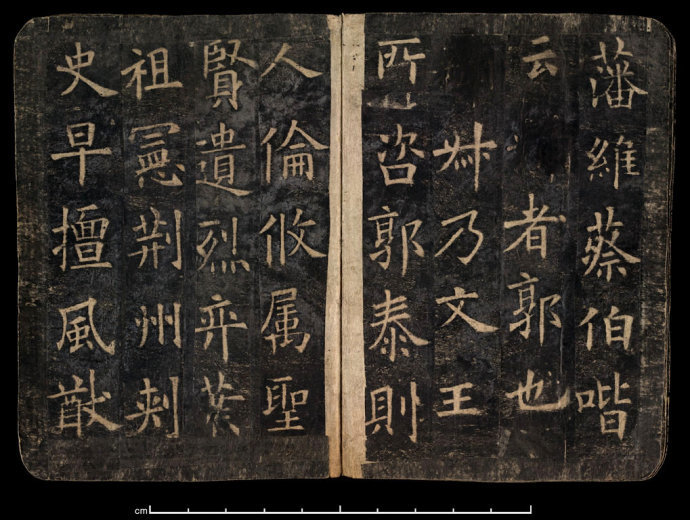 藩維蔡伯喈
云者郭也
乃文王
所咨郭泰則
人倫攸属聖
賢遺烈弈葉
祖憲荆州刾
史早擅風猷
cm